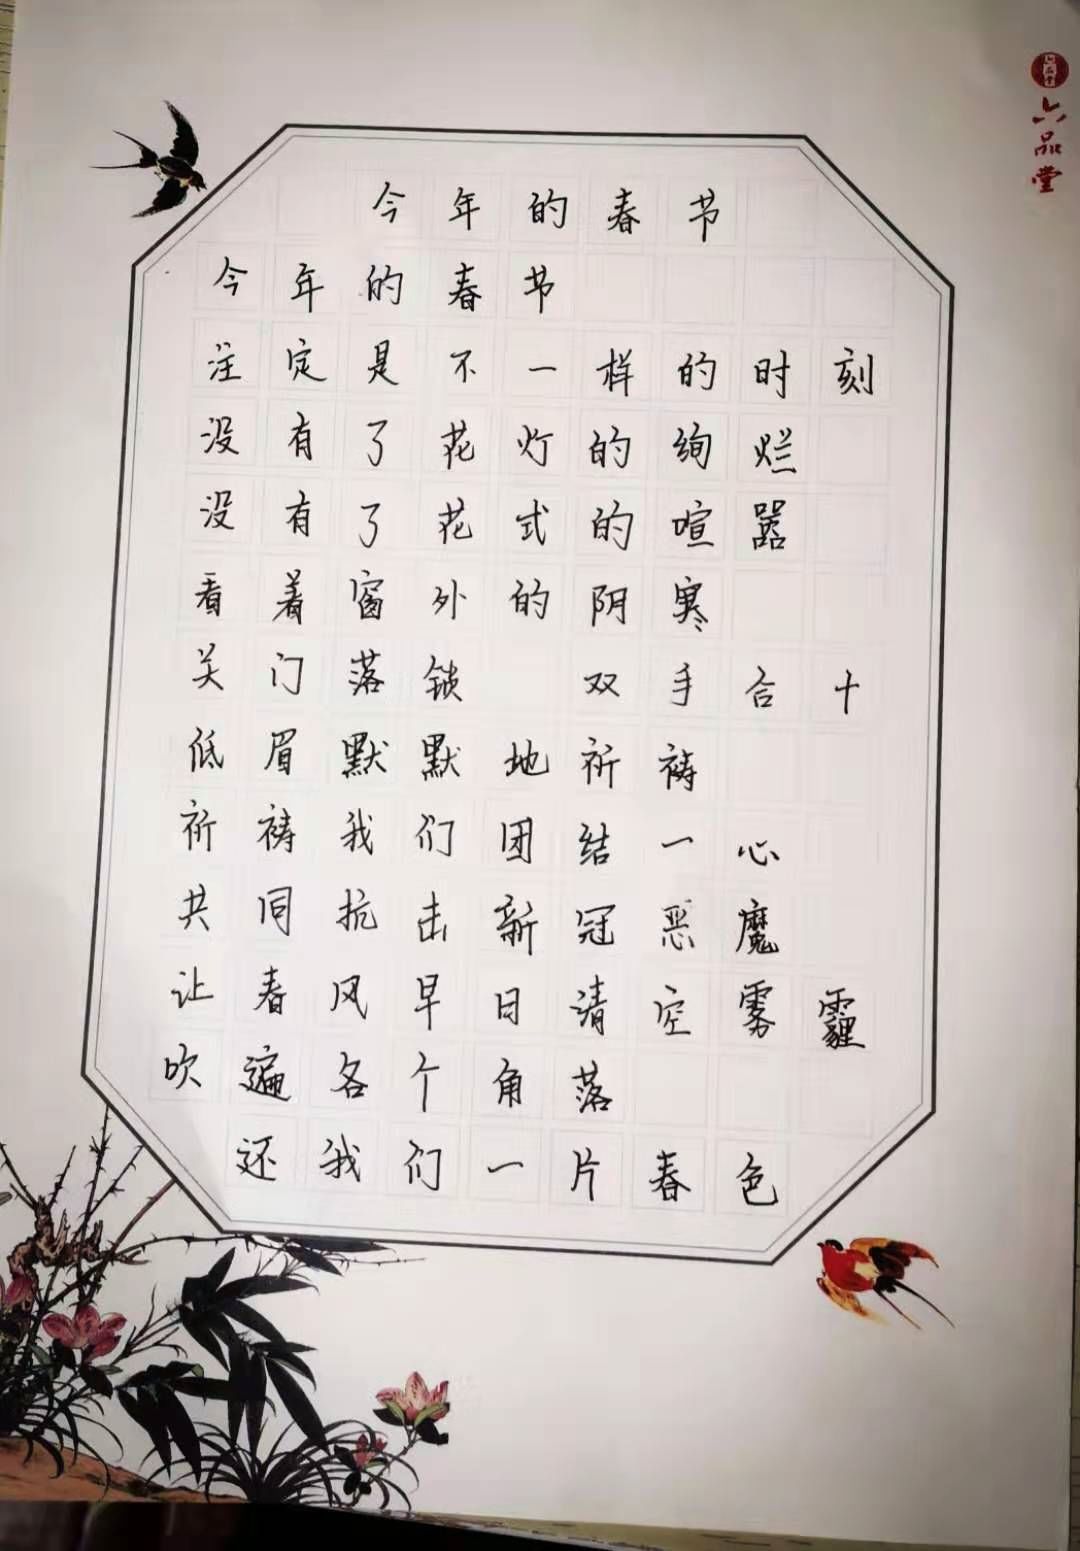 六品堂
今年的春节
今年的春节
注定是不一样的时刻
没有了花灯的绚烂
没有了花式的喧嚣
看着窗外的阴寒
关门落锁 双手合十
低眉默默地祈祷
祈祷我们团结一心
共同抗击新冠恶魔
让春风早日清空雾霾
吹遍各个角落
还我们一片春色